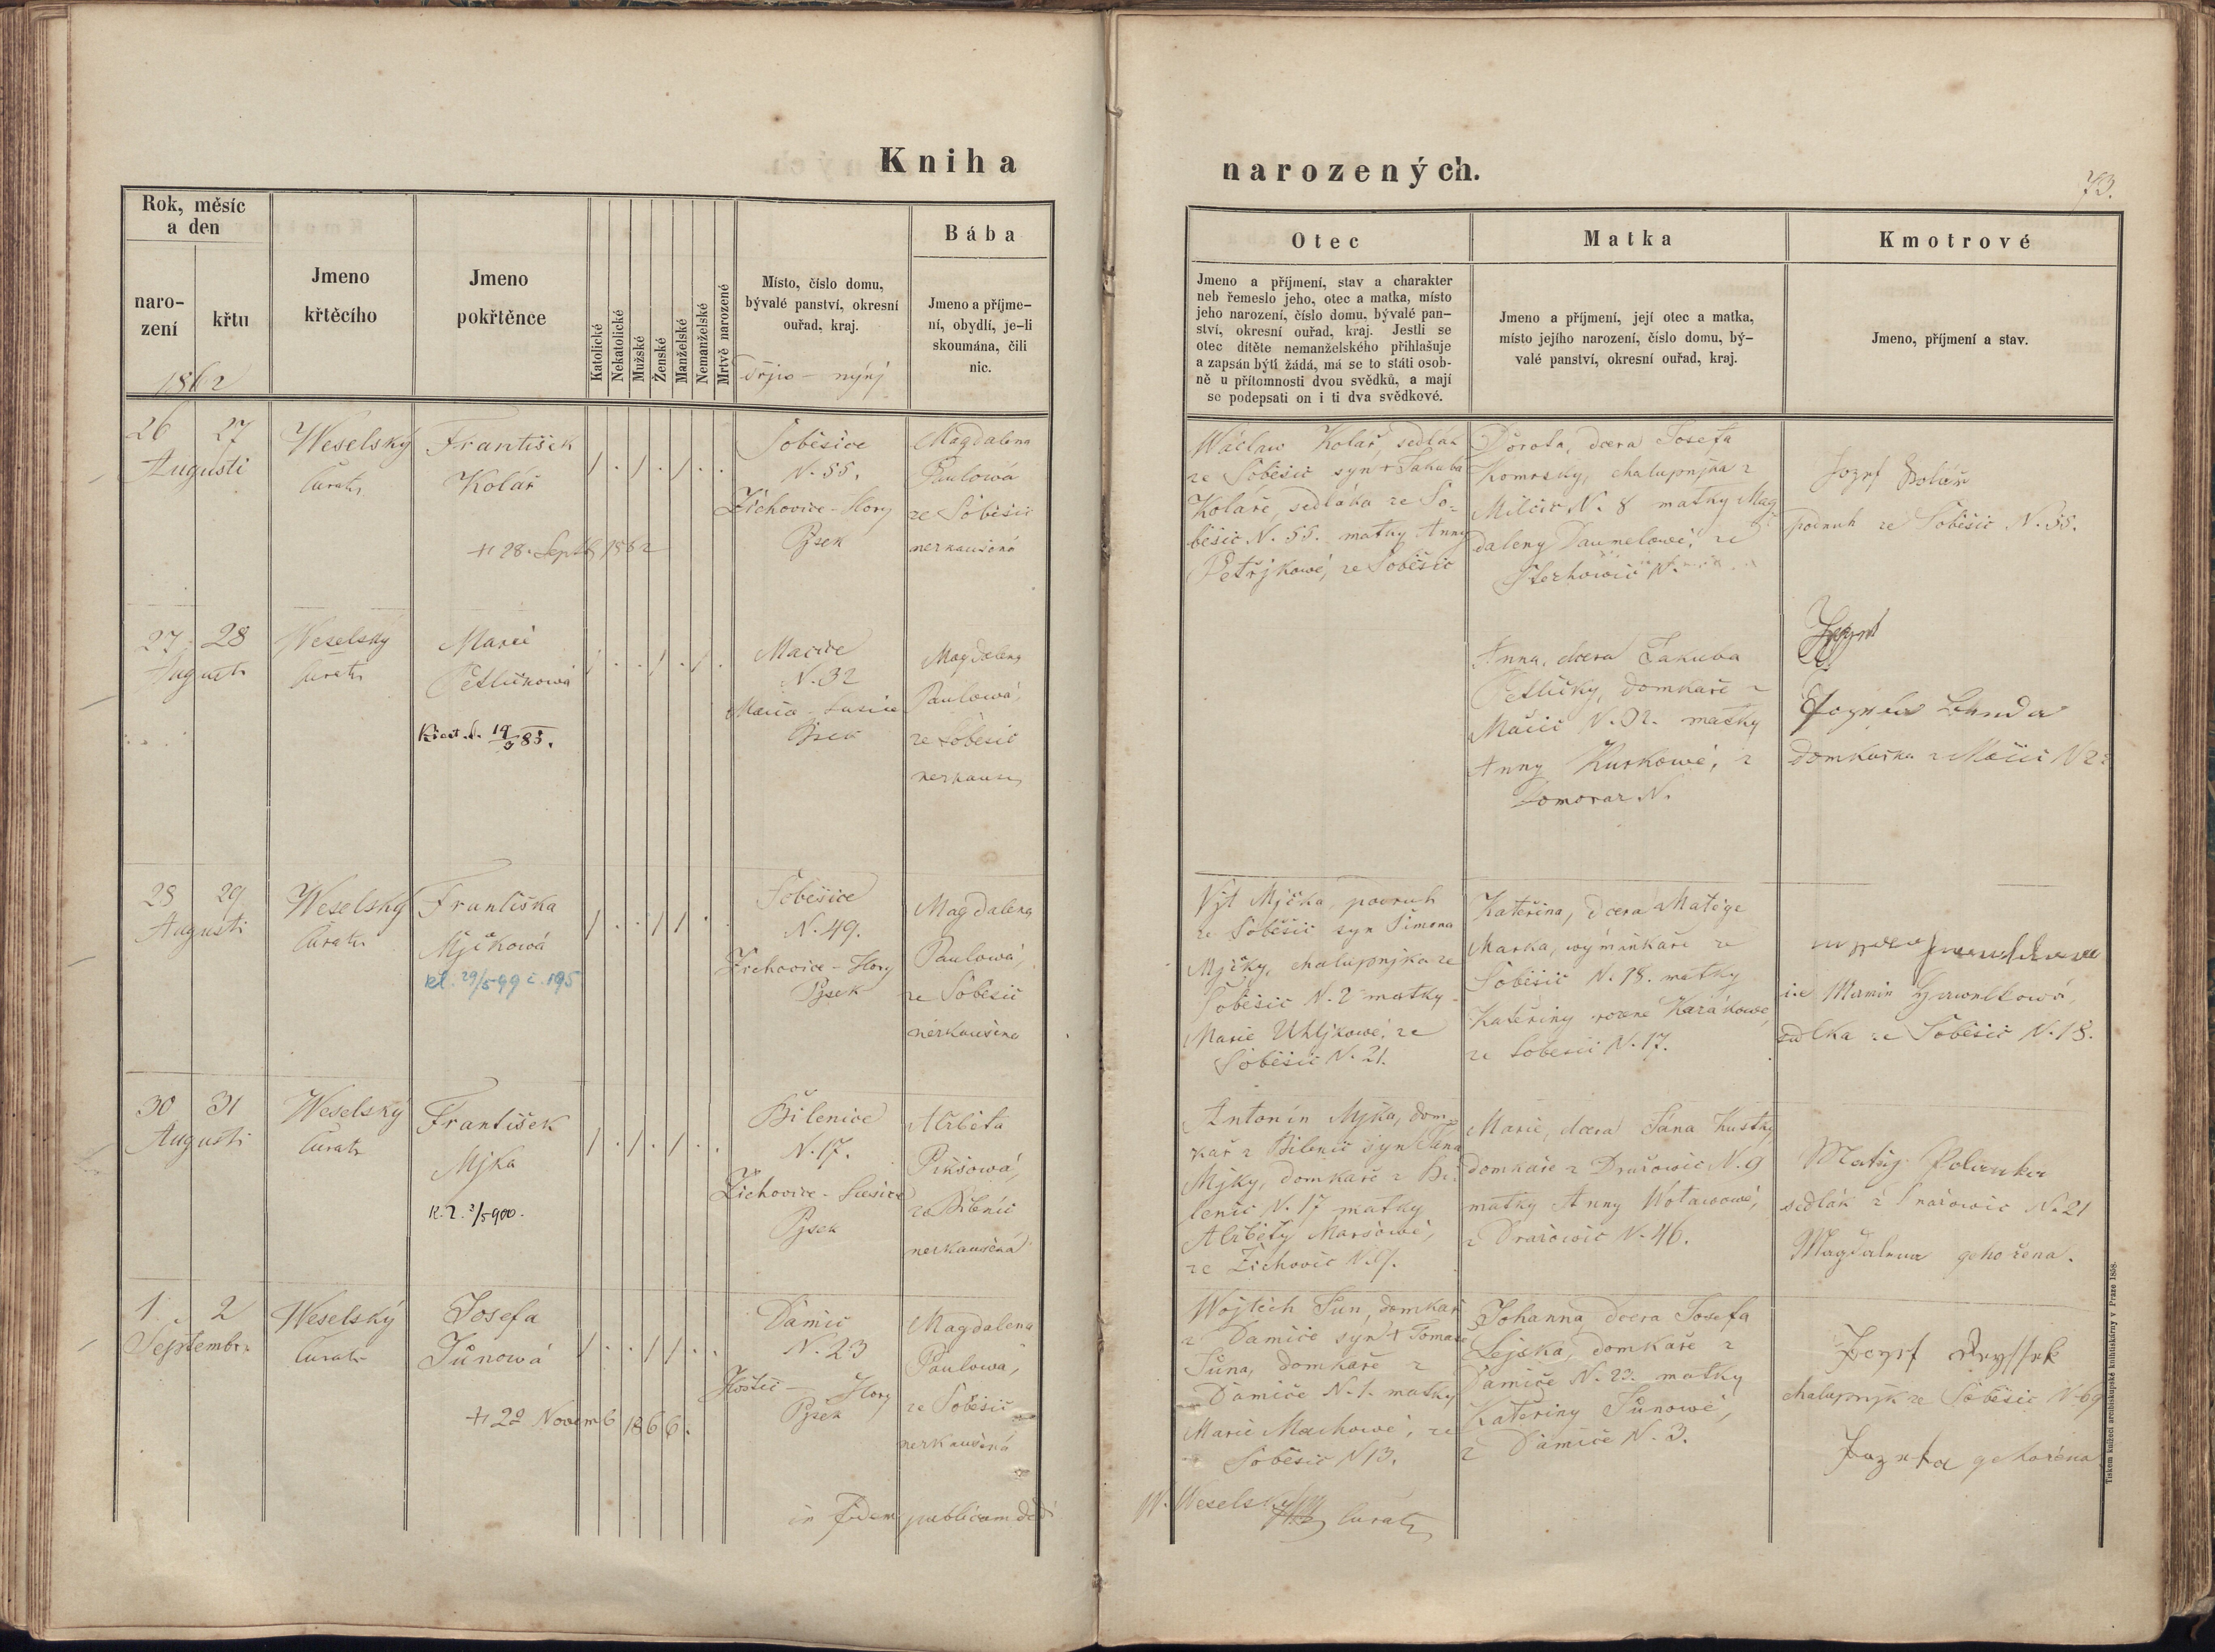 Kniha
narozených.
73.
Rok, měsíc
a den
naro-
zení
křtu
1862
Jmeno
křtěcího
Jmeno
pokřtěnce
Katolické
Nekatolické
Mužské
Ženské
Manželské
Nemanželské
Mrtvě narozené
Místo, číslo domu,
bývalé panství, okresní
ouřad, kraj.
Dřjw - nynj
Bába
Jmeno a příjme-
ní, obydlí, je-li
skoumána, čili
nic.
Otec
Jmeno a příjmení, stav a charakter
neb řemeslo jeho, otec a matka, místo
jeho narození, číslo domu, bývalé pan-
ství, okresní ouřad, kraj. Jestli se
otec dítěte nemanželského přihlašuje
a zapsán býti žádá, má se to státi osob-
ně u přítomnosti dvou svědků, a mají
se podepsati on i ti dva svědkové.
Matka
Jmeno a příjmení, její otec a matka,
místo jejího narození, číslo domu, bý-
valé panství, okresní ouřad, kraj.
Kmotrové
Jmeno, příjmení a stav.
26 27
Augusti
Weselský
Curatr
František
Kolář
+ 28. Septb 1862
/ . / . / . .
Soběšice
N. 55.
Žichovice - Hory
Pjsek
Magdalena
Paulowá
ze Soběšic
nezkaušená
Wáclaw Kolář, sedlák
ze Soběšic syn + Jakuba
Koláře, sedláka ze So-
běšic N. 55. matky Anny
Petřjkowé, ze Soběšic
Dorota, dcera Josefa
Komrsky, chalupnjka z
Milčic N. 8 matky Mag
daleny Daumelowé, ze
N.
Jozef Kolář
podruh ze Soběšic N. 55.
27. 28
Augusti
Weselský
Curatr
Marie
Petličkowá
19 85.
/ . . / . / .
Mačice
N. 32
Pjsek
Magdalena
Paulowá,
ze Soběšic
nezkauše
Anna, dcera Jakuba
Petličky, domkaře z
Mačic N. 32. matky
Anny Kurkowé, z
Domoraz N.
domkařka z Mačic N 2
28 29
Augusti
Weselský
Curatr
Františka
Mjčkowá
kl. 29/5 99 č. 195
/ . . / / .
Soběšice
N. 49.
Žichovice - Hory
Pjsek
Magdalena
Paulowá,
ze Soběšic
nezkaušena
Vjt Mjčka, podruh
ze Soběšic syn Šimona
Mjčky, chalupnjka ze
Soběšic N. 2 matky
Marie Uhljkowé, ze
Soběšic N. 21.
Kateřina, dcera Matěge
Marka, wýminkaře ze
Soběšic N. 18. matky
Kateřiny rozené Karákowé,
ze Soběšic N. 17.
sedlka ze Soběšic N. 18.
30 31
Augusti
Weselský
Curatr
František
Mjka
/ . / . / . .
Bilenice
N. 17.
Žichovice - Sušice
Pjsek
Alžběta
Pikšowá,
ze Bilenic
nezkaušená
Antonín Mjka, dom-
kař z Bilenic syn Jana
Mjky, domkaře z Bi-
lenic N. 17 matky
Alžběty Maršowé,
ze Žichovic N. 7.
Marie, dcera Jana Kustky
domkaře z Dražowic N. 9
matky Anny Wotawowé,
z Dražowic N. 46.
Matěg Polanka
sedlák z Dražowic N. 21
Magdalena geho žena.
1. 2
September
Weselský
Curatr
Josefa
Šůnowá
+ 29 Novemb 1866.
/ . . / / . .
Damič
N. 23
Hoštic - Hory
Pjsek
Magdalena
Paulowá,
ze Soběšic
nezkaušená
Wojtěch Šun, domkař
z Damiče syn + Tomaše
Šůna, domkaře z
Damiče N. 1. matky
Marie Machowé, ze
Soběšic N 13.
Johanna, dcera Josefa
Sejpka, domkaře z
Damiče N. 23. matky
Kateřiny Šůnowé,
z Damiče N. 3.
chalupnjk ze Soběšic N 69
Jozefa geho žena
in Fidem publicam dedi
W. Weselský Curatr
Tiskem knížecí arcibiskupské knihtiskárny v Praze 1858.